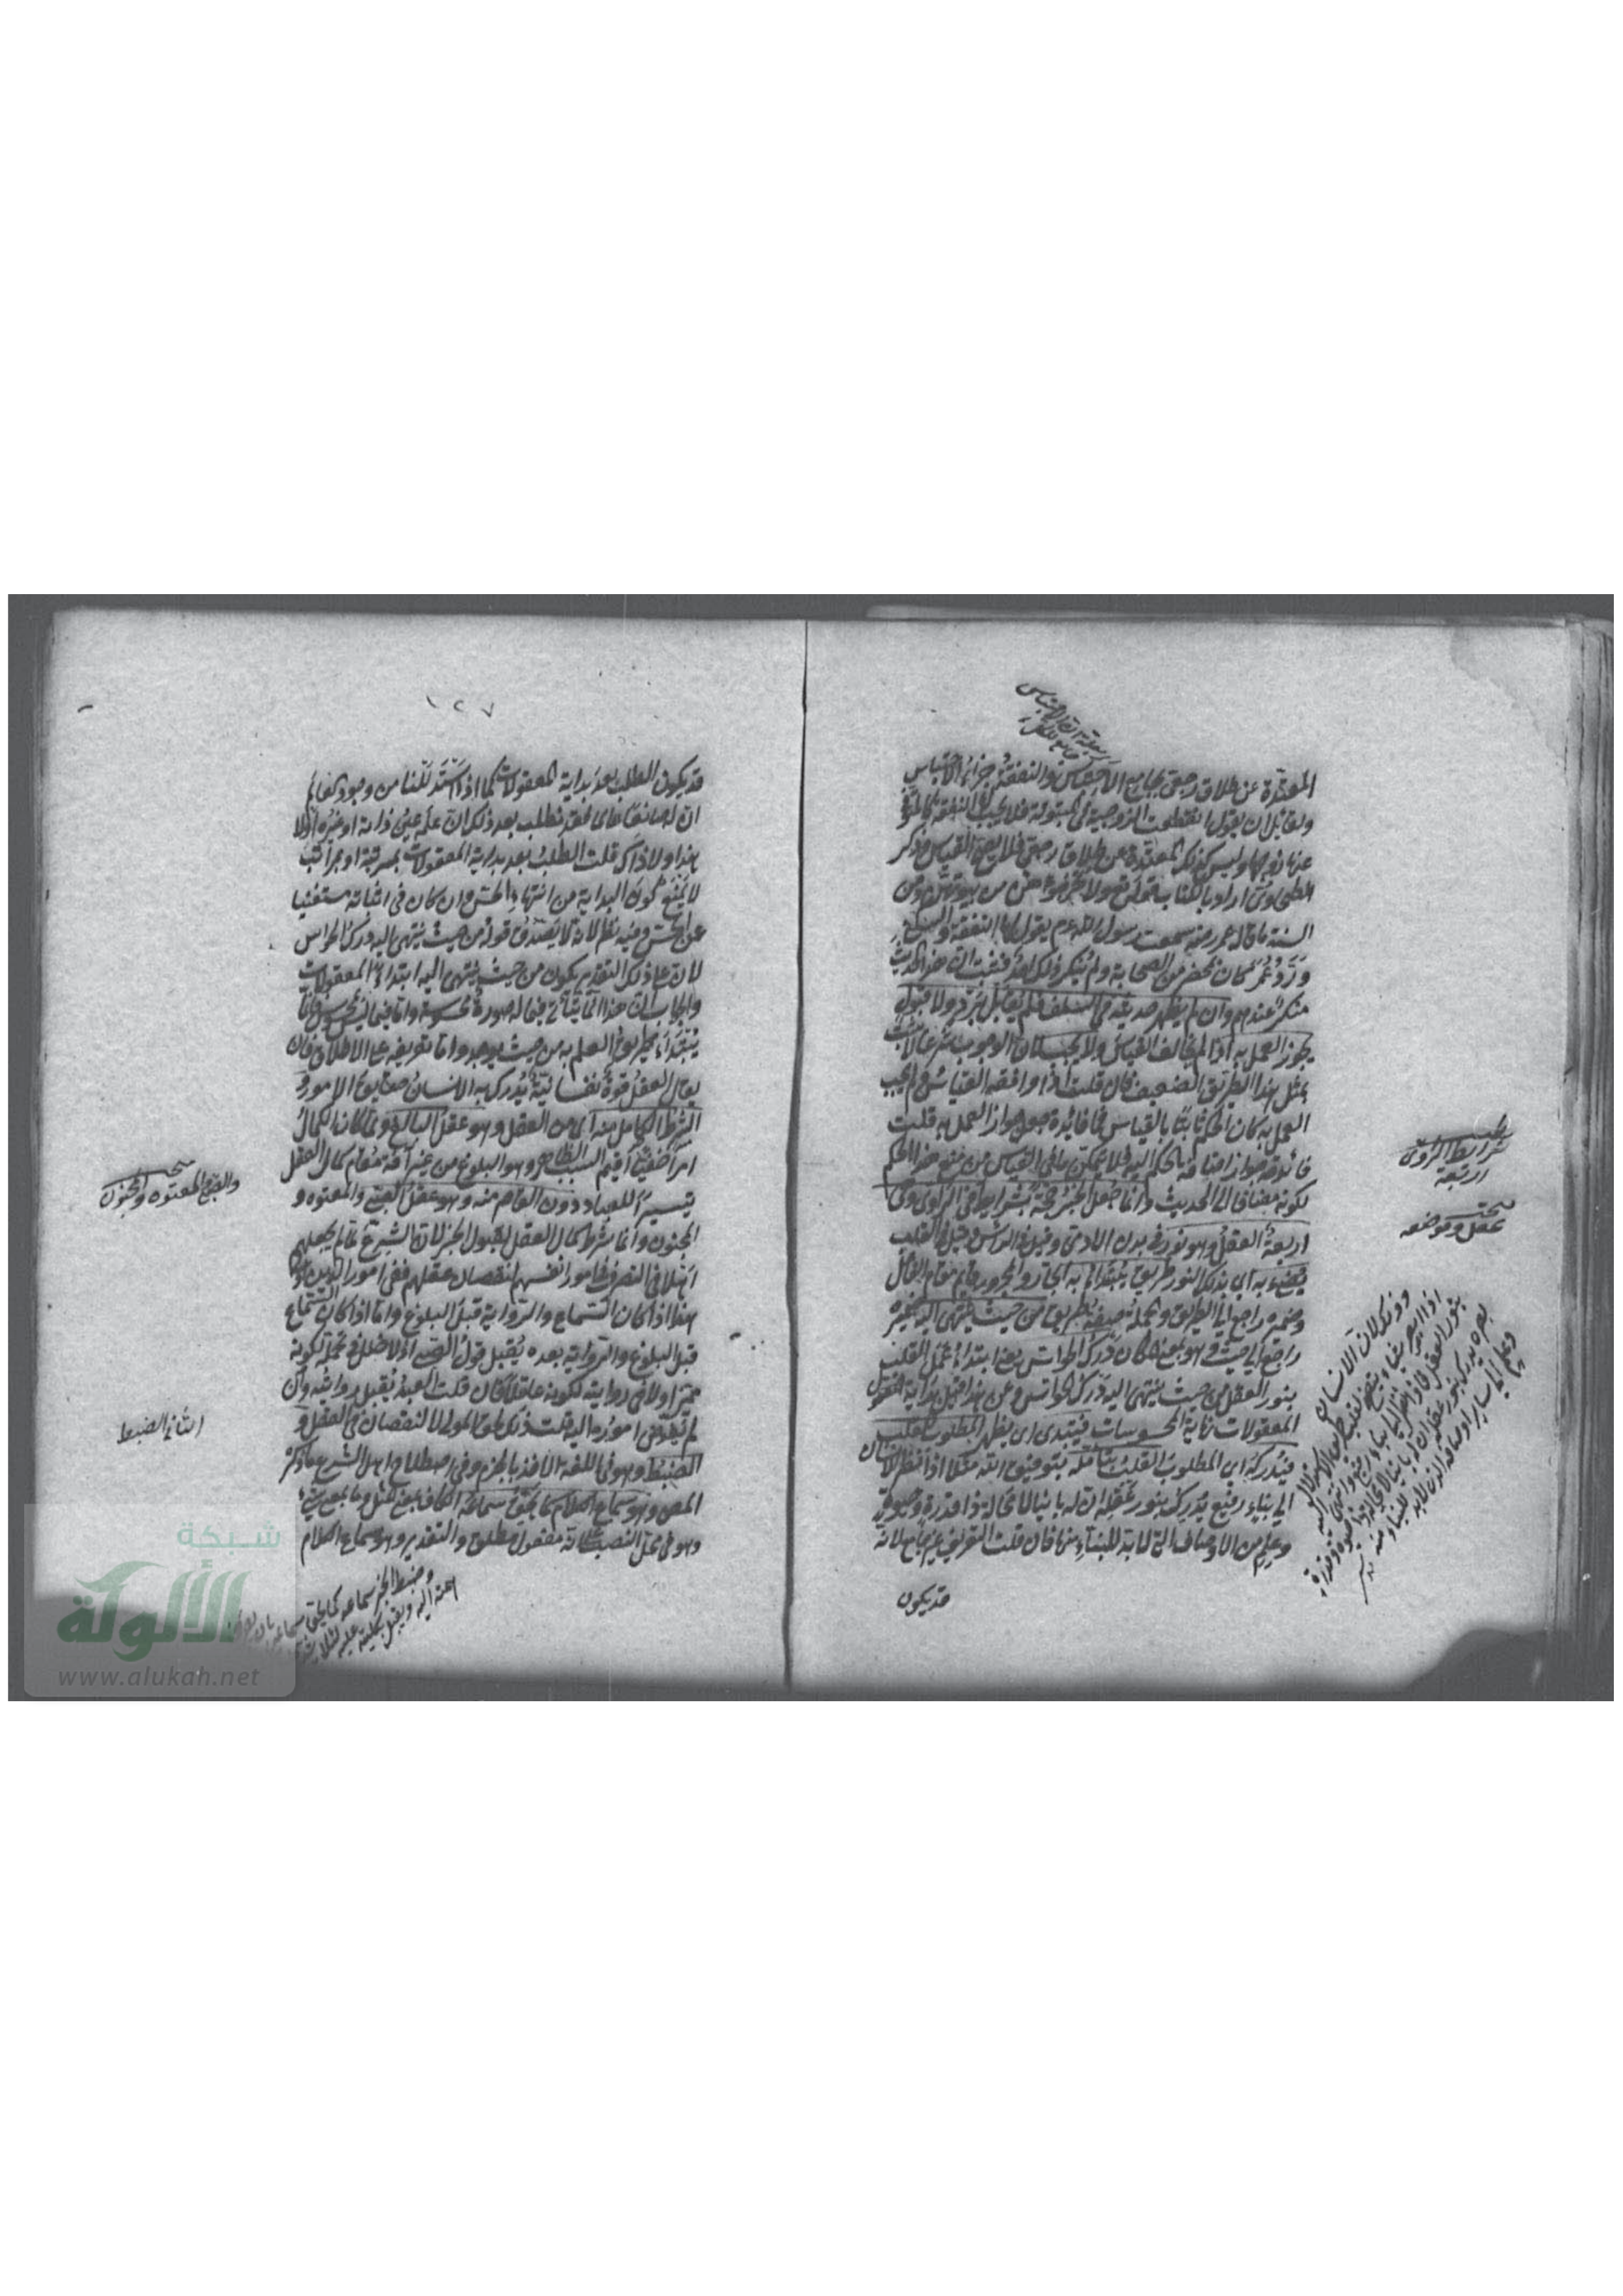 المعتدة عن طلاق رجعي بجامع الاحتباس والنفقة جزاء الاحتباس
ولقائل ان يقول انقطعت الزوجية في المبتوتة فلا يجب لها النفقة
عنها زوجها وليس كذلك المعتدة عن طلاق رجعي فلا يصح القياس وذكر
الطحاوي اراد بالكتاب قوله لا تخرجوهن من بيوتهن ومن
السنة ما قال عمر رضه سمعت رسول الله عم يقول لها النفقة والسكنى
ورد عمر كان بمحضر من الصحابة ولم ينكر ذلك احد فثبت ان هذا الحديث
منكر عندهم وان لم يظهر حديثه في السلف فلم يقابل برد ولا قبول
يجوز العمل به اذا لم يخالف القياس ولا يجب لان الوجوب شرعا لا يثبت
بمثل هذا الطريق الضعيف فان قلت اذا وافقه القياس ولم يجب
العمل به كان الحكم ثابتا بالقياس فما فائدة جواز العمل به قلت
فائدته جواز اضافة الحكم اليه فلا يتمكن نافي القياس من منع هذا الحكم
لكونه مضافا الى الحديث وانما جعل الخبر حجة بشرائط في الراوي وهي
اربعة العقل وهو نور في بدن الآدمي وقيل في الرأس وقيل في القلب
يضيء به اي بذلك النور طريق يبتدأ به الجار والمجرور قائم مقام الفاعل
وضميره راجع الى الطريق والجملة صفة لطريق من حيث ينتهي اليه ضميره
راجع الى حيث وهو بمعنى المكان درك الحواس يعني ابتداء عمل القلب
بنور العقل من حيث ينتهي اليه درك الحواس ومن هذا قيل بداية
المعقولات نهاية المحسوسات فيبتدى اي يظهر المطلوب للقلب
فيدركه اي المطلوب القلب بتأمله بتوفيق الله مثلا اذا نظر الانسان
الى بناء رفيع يدرك بنور عقله ان له بانيا لا محالة ذا قدرة وحيوة
وعلم من الاوصاف التي لابد للبناء منها فان قلت التعريف غير جامع لانه
قد يكون
شرائط الراوي
اربعة
عقل وموضعه
١٢٧
قد يكون الطلب بعد بداية المعقولات كما اذا استدللنا من وجود العالم
ان له صانعا نطلب بعد ذلك ان علمه عين ذاته او غيره اولا
هذا ولا ذاك قلت الطلب بعد بداية المعقولات بمرتبة او بمراتب
لا يمنع كون البداية من انتهاء الحس وان كان في اثنائه مستغنيا
عن الحس وفيه نظر لانه لا يصدق قوله من حيث ينتهي اليه درك الحواس
لان على ذلك التقدير يكون من حيث ينتهي اليه ابتداء المعقولات
والجواب ان هذا انما يتأتى فيما له صورة محسوسة واما فيما ليس بمحسوس فانما
يبتدأ بطريق العلم به من حيث يوجد واما تعريفه على الاطلاق فان
يقال العقل قوة نفسانية يدرك به الانسان حقايق الامور و
الشرط الكامل منه اي من العقل وهو عقل البالغ ولما كان الكمال
امرا خفيا اقيم السبب الظاهر وهو البلوغ من غير آفة مقام كمال العقل
تيسيرا للعباد دون القاصر منه وهو عقل الصبي والمعتوه و
المجنون وانما شرط كمال العقل لقبول الخبر لان الشرع لما لم يجعلهم
اهلا في التصرف في امور انفسهم لنقصان عقلهم ففي امور الدين اولى
هذا اذا كان السماع والرواية قبل البلوغ واما اذا كان السماع
قبل البلوغ والرواية بعده يقبل قول الصبي اذ لا خلل في تحمله لكونه
مميزا ولا في روايته لكونه عاقلا فان قلت العبد يقبل روايته وان
لم تفوض اموره اليه قلت ذلك لحق المولى لا لنقصان في العقل و
الضبط وهو في اللغة الاخذ بالجزم وفي اصطلاح اهل الشرع ما ذكره
المص وهو سماع الكلام كما يحق سماعه الكاف بمعنى المثل وما بمعنى شيء
وهو في محل النصب على انه مفعول مطلق والتقدير وهو سماع الكلام
والصبي والمعتوه والمجنون
الثاني الضبط
شبكة
الألوكة
www.alukah.net